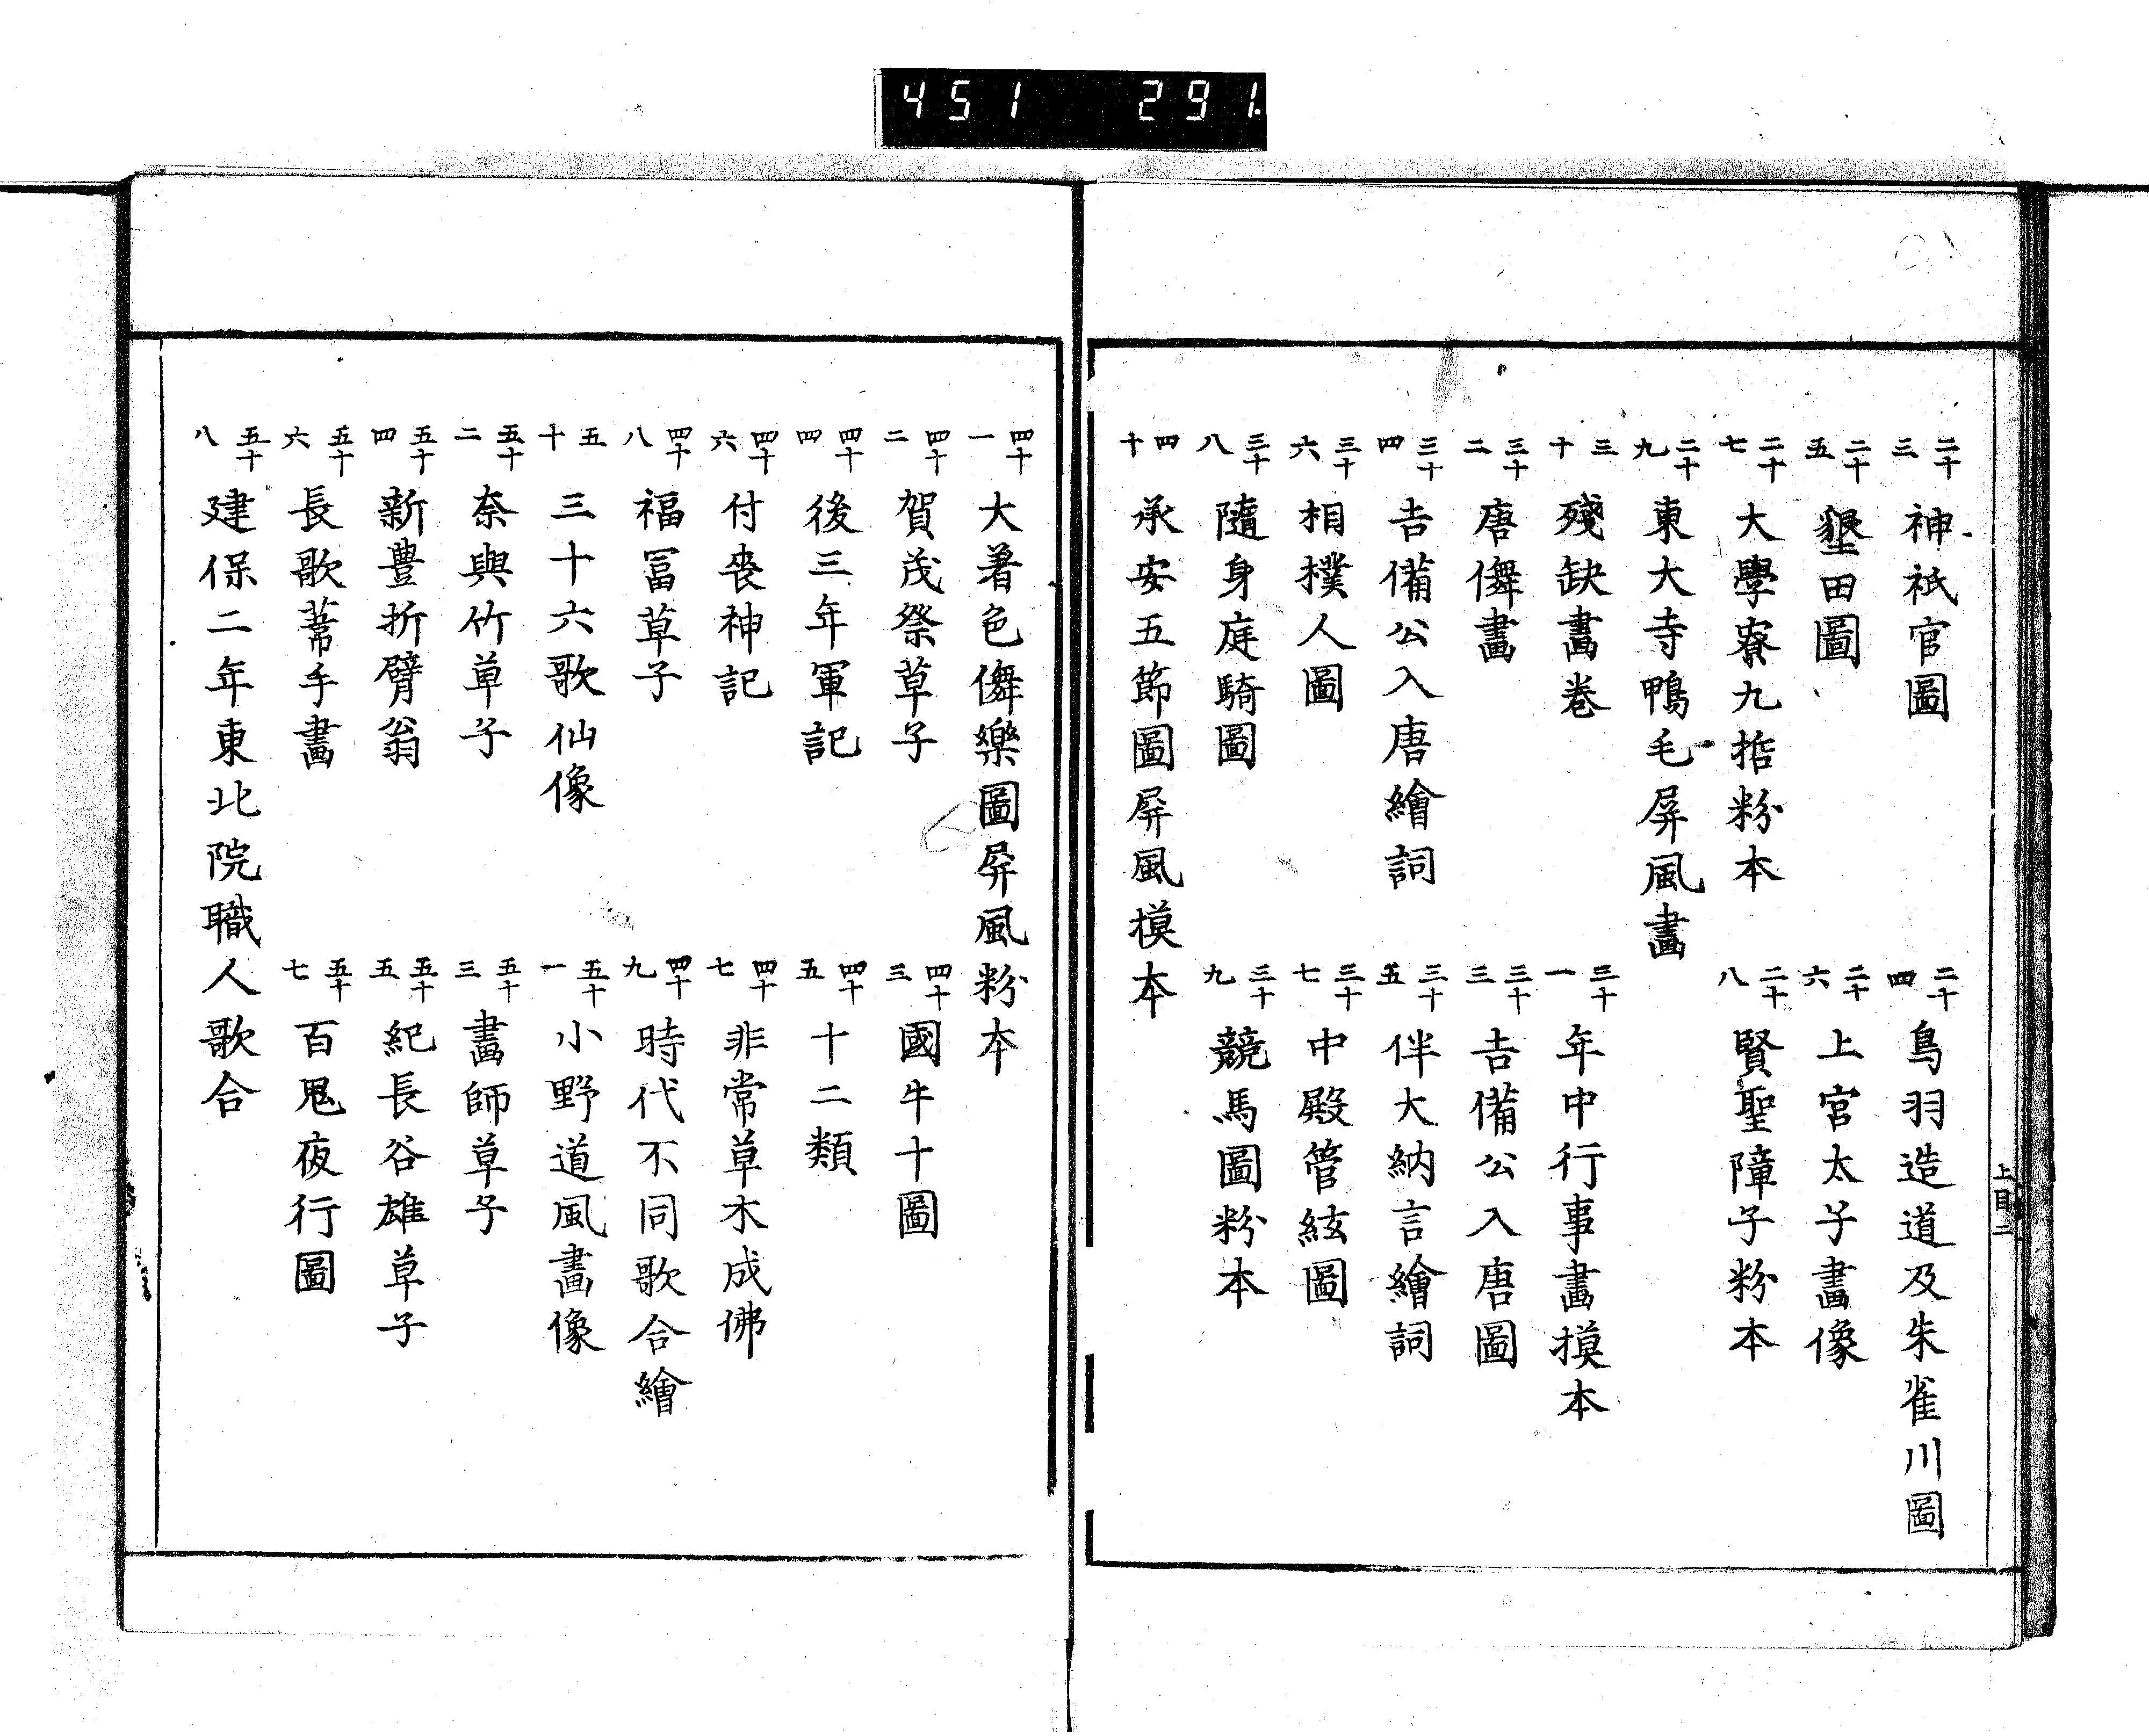 451 291
二十三 神祇官圖
二十四 鳥羽造道及朱雀川圖
二十五 墾田圖
二十六 上宮太子畫像
二十七 大學寮九拓粉本
二十八 賢聖障子粉本
二十九 東大寺鴨毛屏風畫
三十 殘缺畫卷
三十一 年中行事畫摸本
三十二 唐儛畫
三十三 吉備公入唐圖
三十四 吉備公入唐繪詞
三十五 伴大納言繪詞
三十六 相撲人圖
三十七 中殿管絃圖
三十八 隨身庭騎圖
三十九 競馬圖粉本
四十 承安五節圖屏風摸本
上目二
四十一 大著色儛樂圖屏風粉本
四十二 賀茂祭草子
四十三 國牛十圖
四十四 後三年軍記
四十五 十二類
四十六 付喪神記
四十七 非常草木成佛
四十八 福冨草子
四十九 時代不同歌合繪
五十 三十六歌仙像
五十一 小野道風畫像
五十二 奈與竹草子
五十三 畫師草子
五十四 新豐折臂翁
五十五 紀長谷雄草子
五十六 長歌葦手畫
五十七 百鬼夜行圖
五十八 建保二年東北院職人歌合